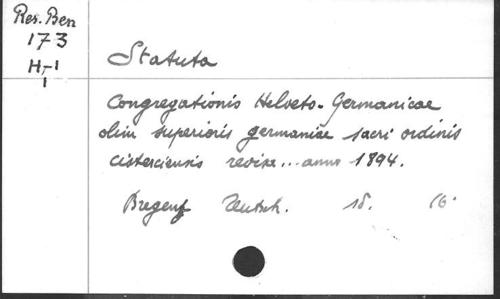 Res. Ben
173
H,-1
1
Statuta
Congregationis Helveto-Germanicae
olim superioris germaniae sacri ordinis
cisterciensis revisa... anno 1894.
Bregenz Teutsch. 18. 16.